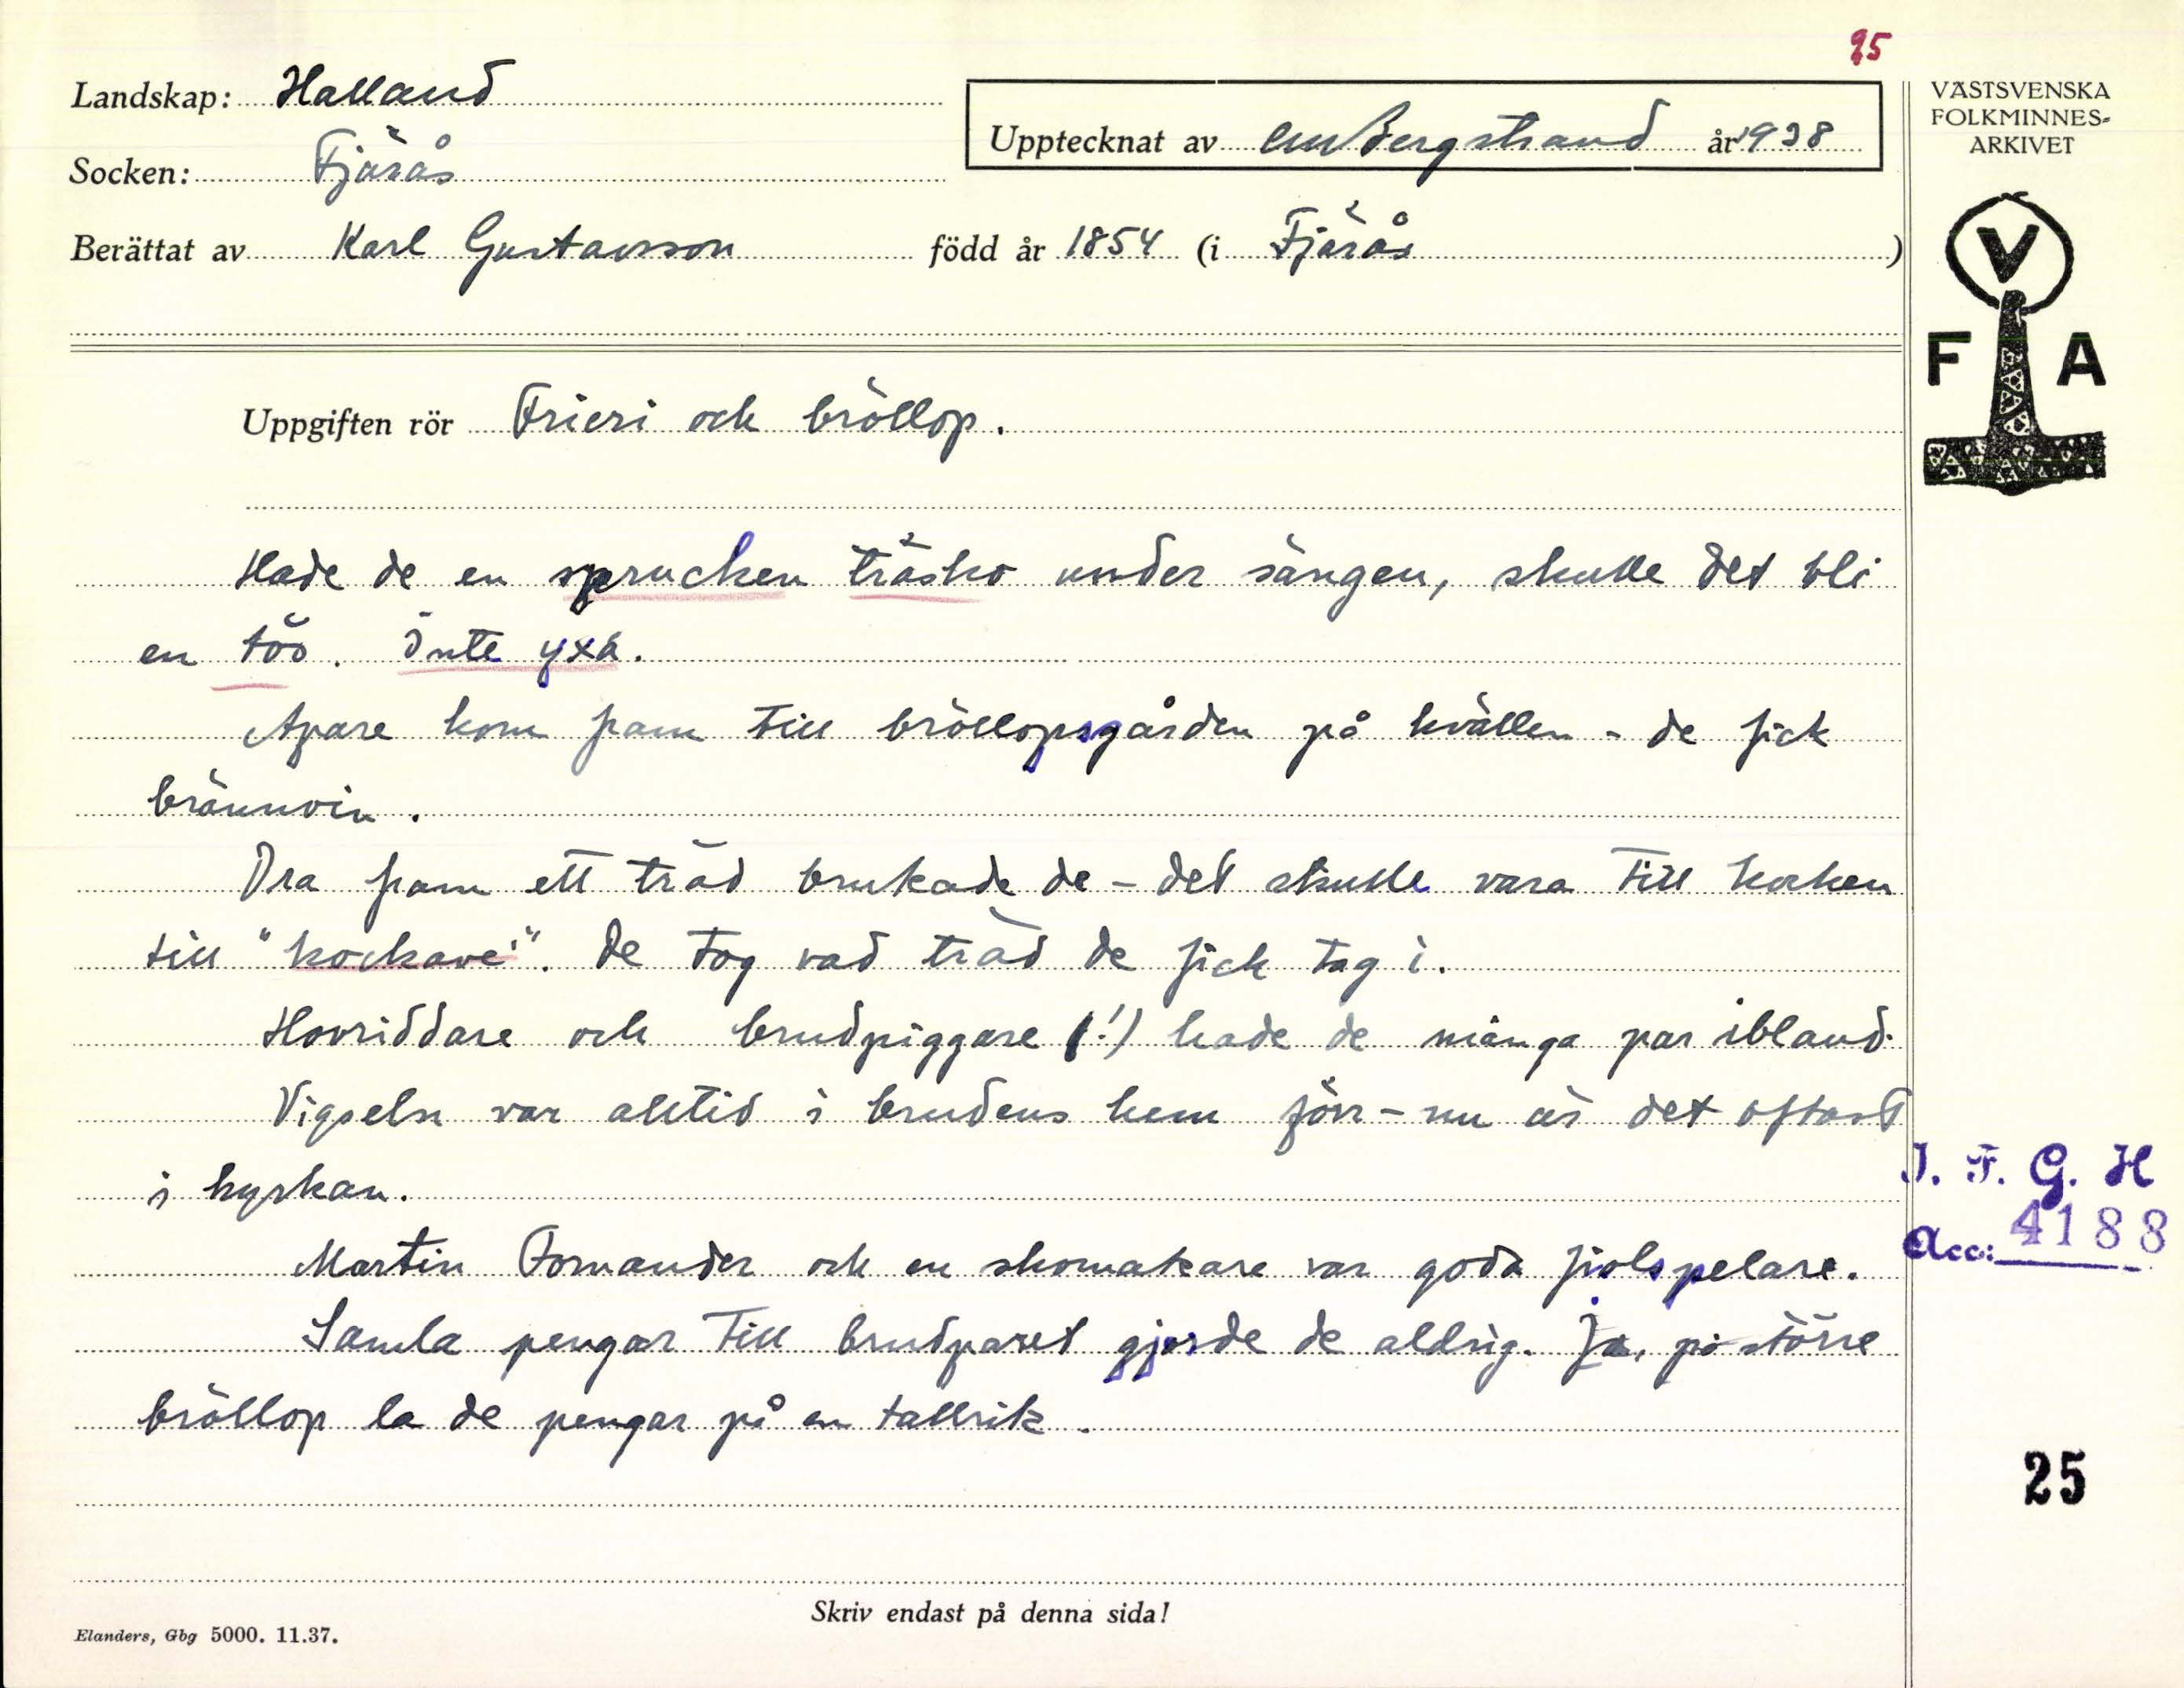 95
Landskap: Halland
Upptecknat av CM Bergstrand år 1938
Socken: Fjärås
Berättat av Karl Gustavsson född år 1854 (i Fjärås )
VÄSTSVENSKA
FOLKMINNES-
ARKIVET
V
F A
Uppgiften rör Frieri och bröllop.
Hade de en sprucken träsko under sängen, skulle det bli
en tös. Inte yxa.
Apare kom fram till bröllopsgården på kvällen - de fick
brännvin.
Dra fram ett träd brukade de - det skulle vara till kocken
till "kockave'". De tog vad träd de fick tag i.
Hovriddare och brudpiggare (!) hade de många par ibland.
Vigseln var alltid i brudens hem förr - nu är det oftast
i kyrkan.
Martin Fornander och en skomakare var goda fiolspelare.
Samla pengar till brudparet gjorde de aldrig. Ja, på större
bröllop la de pengar på en tallrik.
I. F. G. H
Acc: 4188
25
Skriv endast på denna sida!
Elanders, Gbg 5000. 11.37.